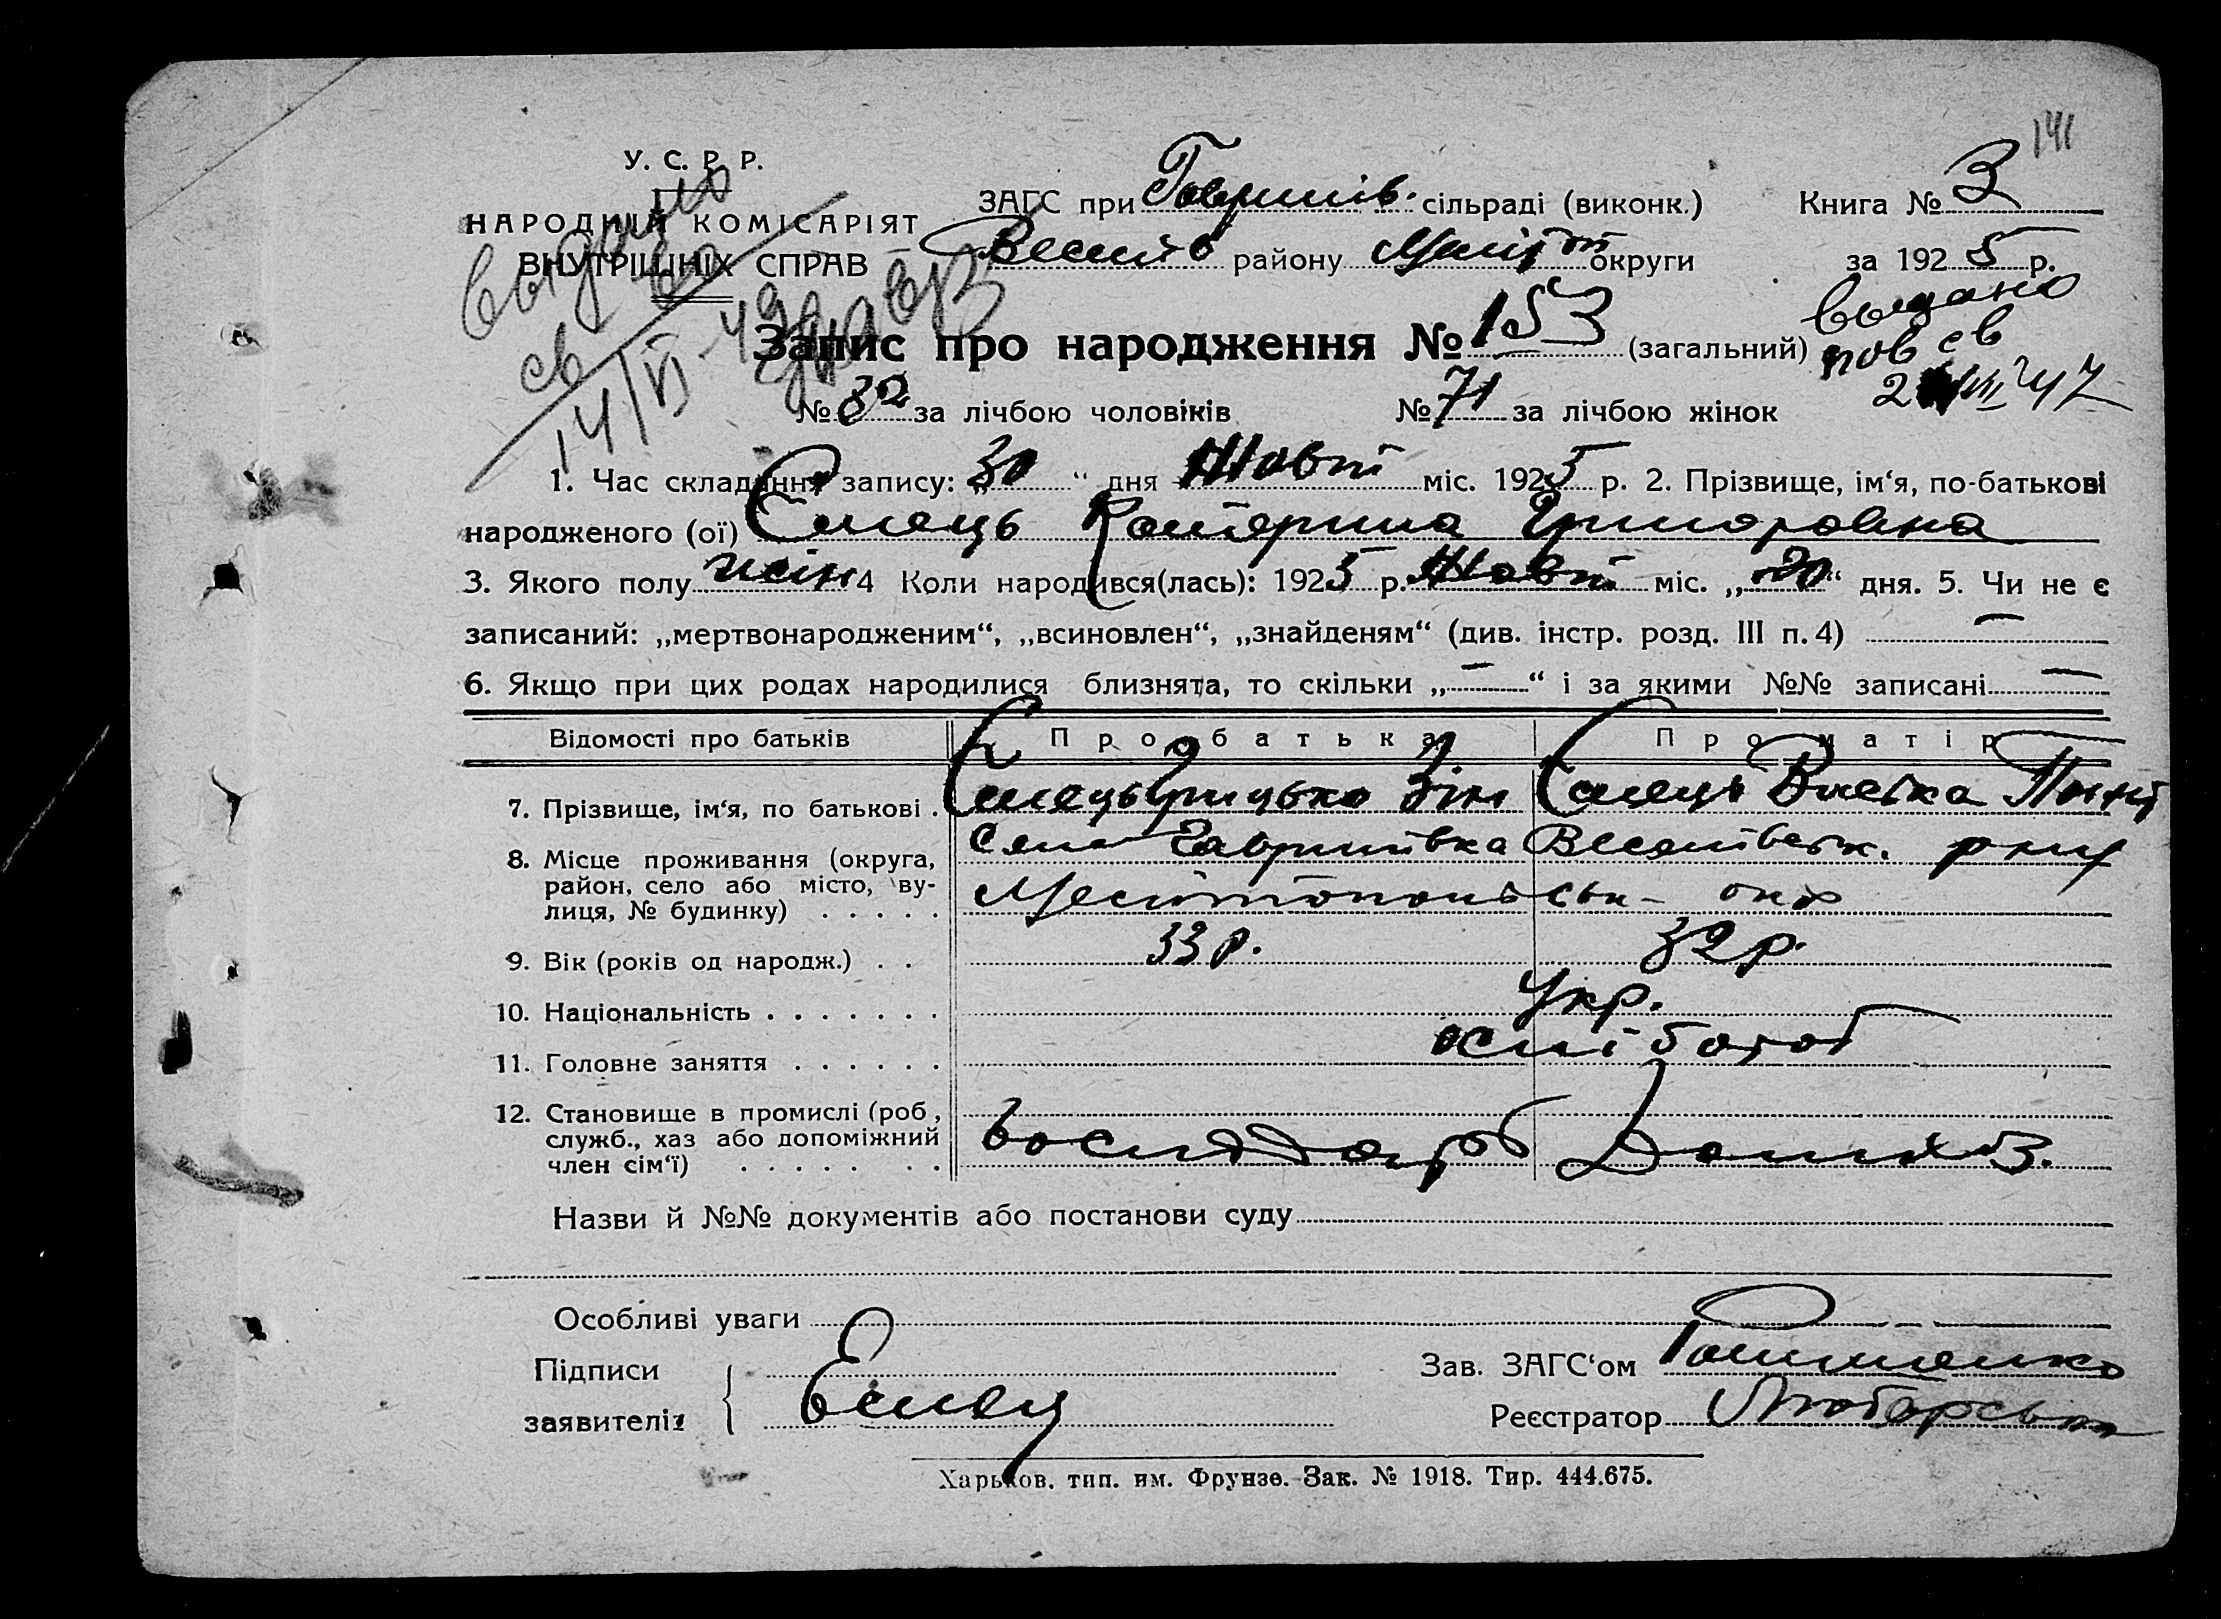 141
У. С. Р. Р.
НАРОДНІЙ КОМІСАРІЯТ
ВНУТРІШНІХ СПРАВ
ЗАГС при Гаврилів. сільраді (виконк.) Книга № 3
Весело району Меліт округи за 1925 р.
выдано
св
14/VI-49
Запис про народження № 153 (загальний)
выдано
пов св
№ 82 за лічбою чоловіків № 71 за лічбою жінок
1. Час складання запису: „30“ дня Жовт міс. 1925 р. 2. Прізвище, ім‘я, по-батькові
народженого (ої) Ємець Катерина Григоровна
3. Якого полу жін 4 Коли народився(лась): 1925 р. Жовт міс. „20“ дня. 5. Чи не є
записаний: „мертвонародженим“, „всиновлен“, „знайденям“ (див. інстр. розд. III п. 4) —
6. Якщо при цих родах народилися близнята, то скільки „—“ і за якими №№ записані —
Відомості про батьків Про батька Про матір
7. Прізвище, ім‘я, по батькові . Ємець Грицько Зін Ємець
8. Місце проживання (округа, Село Гаврилівка Веселівськ.
район, село або місто, ву- Мелітопольськ- окр
лиця, № будинку) . . . . .
9. Вік (років од народж.) . . 33 р. 32 р.
10. Національність . . . . . . . Укр.
11. Головне заняття . . . . . .
12. Становище в промислі (роб.,
служб., хаз або допоміжний
член сім‘ї) . . . . . . .
Назви й №№ документів або постанови суду
Особливі уваги
Підписи Зав. ЗАГС‘ом
заявителів Емец Реєстратор
Харьков. тип. им. Фрунзе. Зак. № 1918. Тир. 444.675.